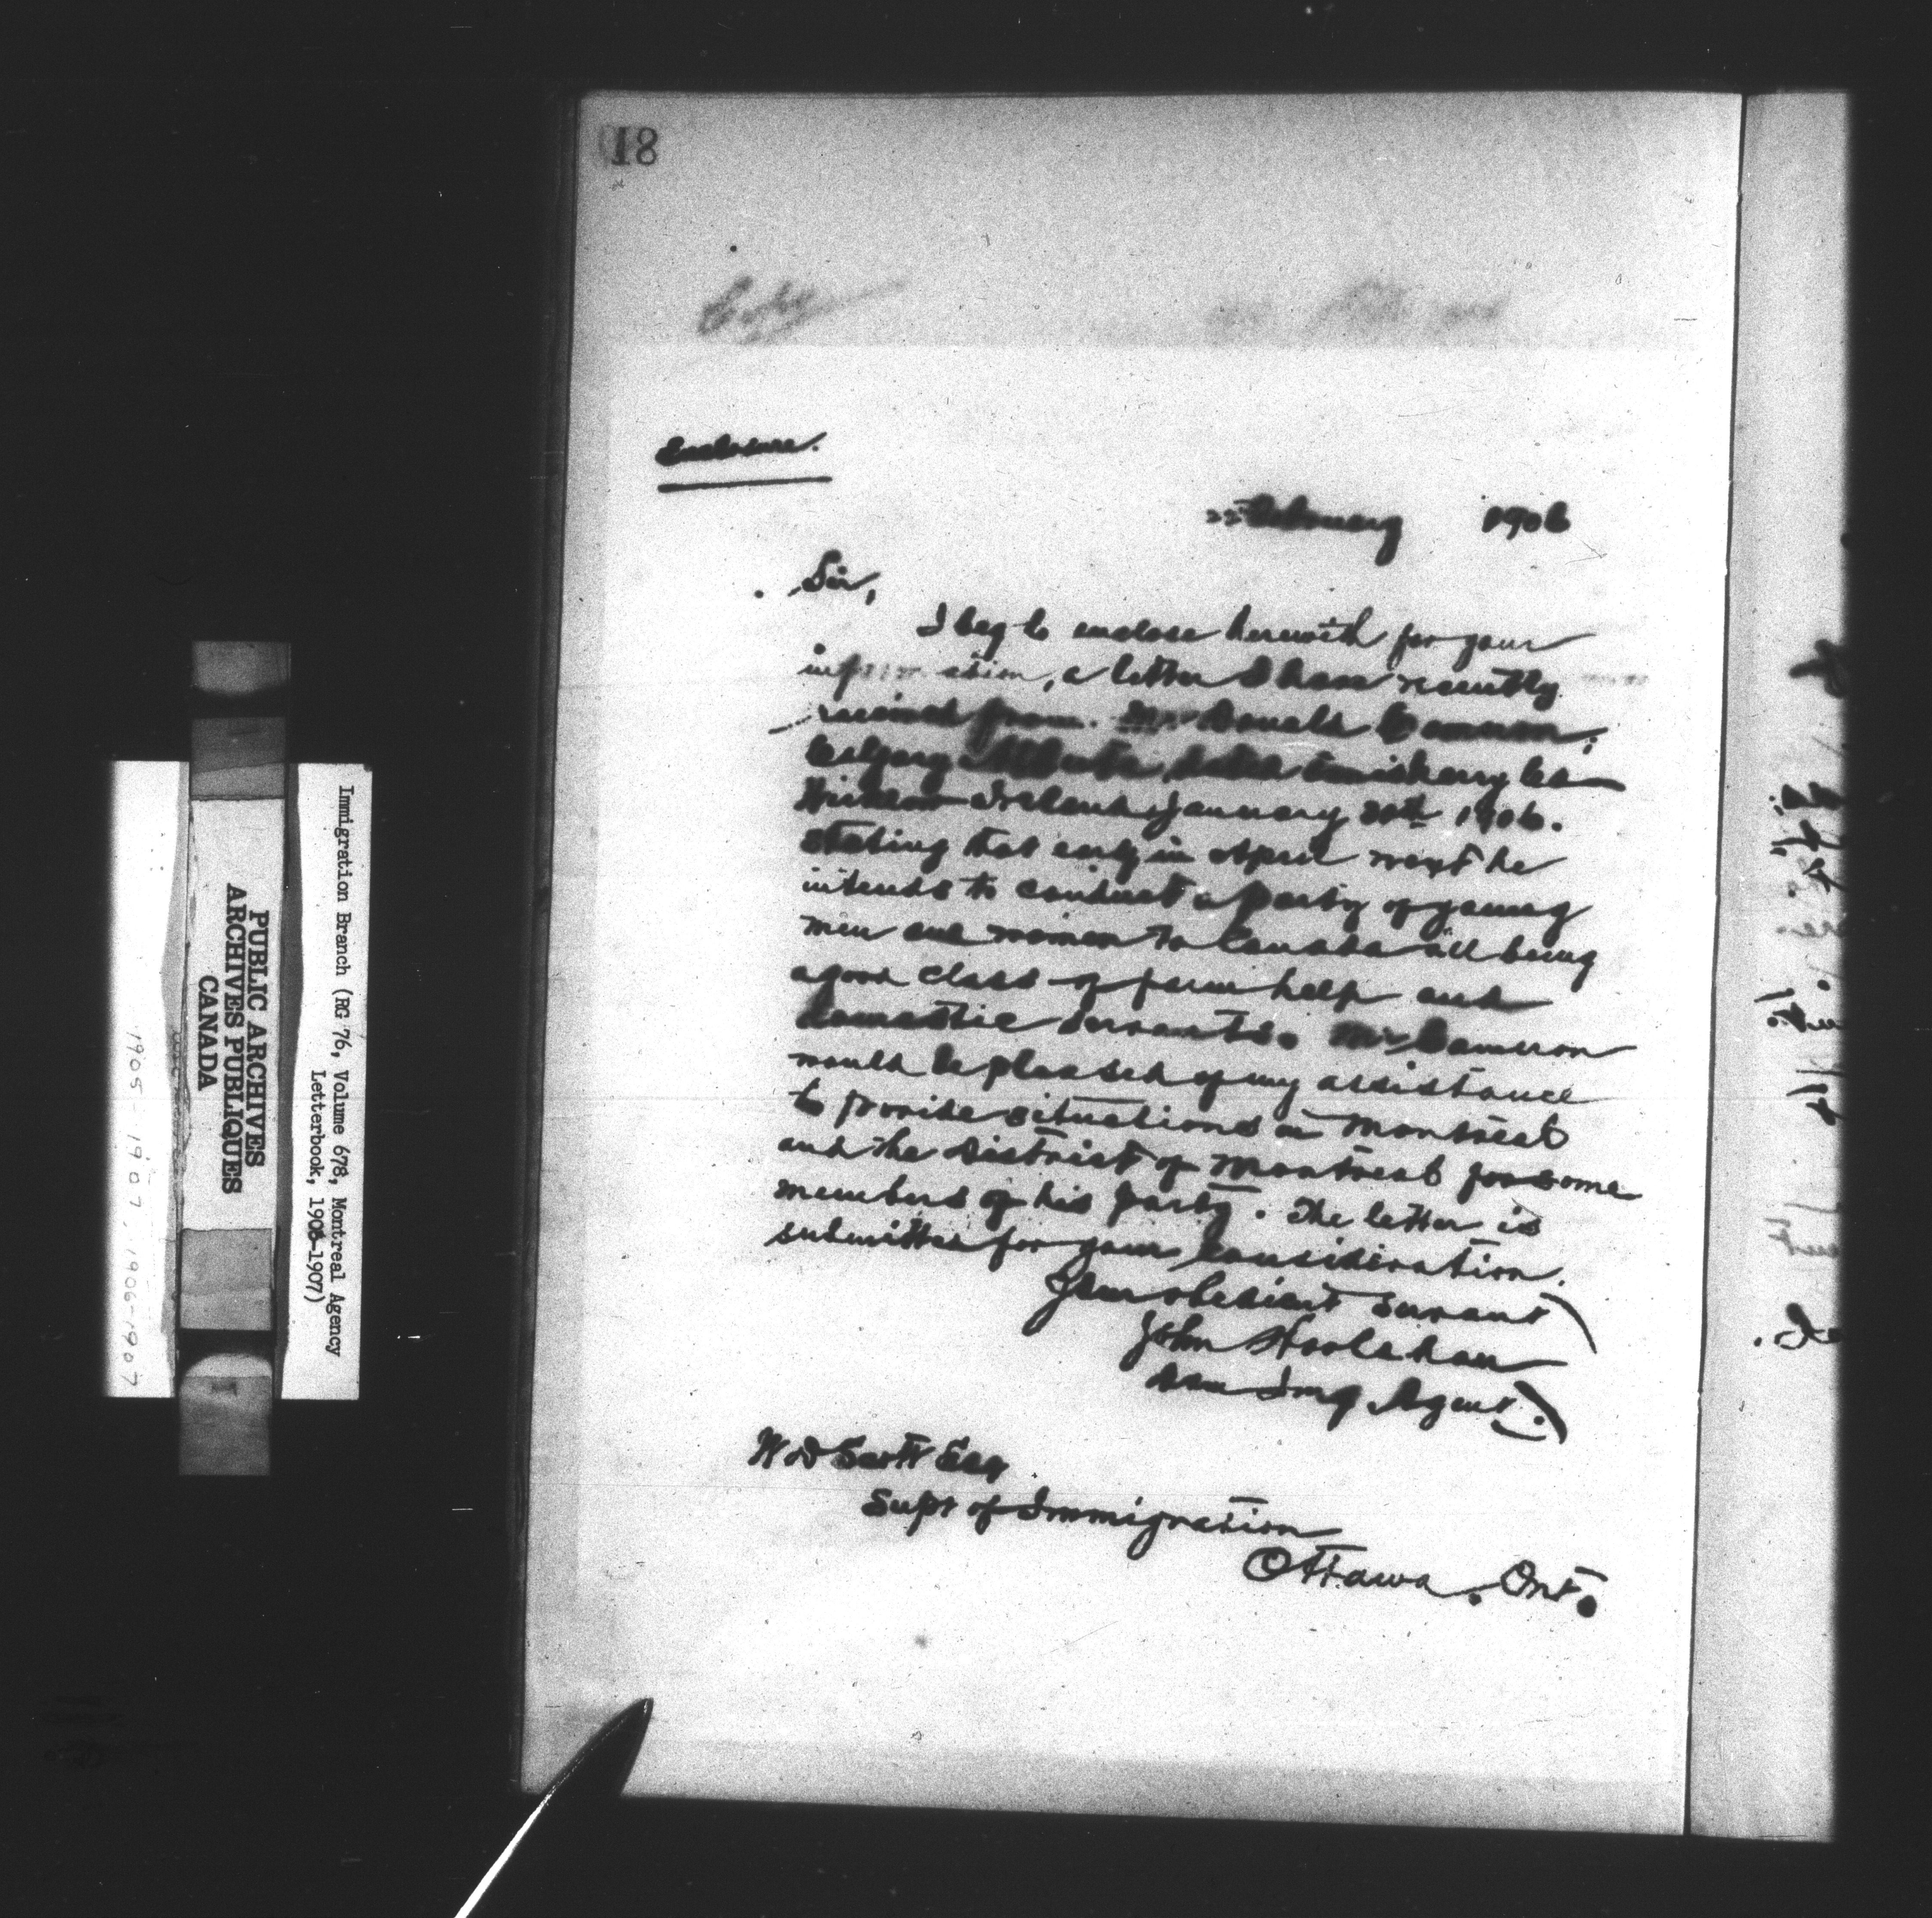 18
Copy
Enclosure.
22 February 1906
Sir,
I beg to enclose herewith for your
information, a letter I have recently
received from Mr Donald Cameron,
Calgary Alberta, dated Co
Wicklow Ireland January 30th 1906.
stating that early in April next he
intends to conduct a party of young
men and women to Canada all being
a good class of farm help and
domestic servants. Mr Cameron
would be pleased of my assistance
to provide situations in Montreal
and the District of Montreal for some
members of his party. The letter is
submitted for your consideration.
Your obedient servant
John Hoolahan
Dom Img Agent.
W D Scott Esq
Supt of Immigration
Ottawa. Ont.
Immigration Branch (RG 76, Volume 678, Montreal Agency
Letterbook, 1906-1907)
PUBLIC ARCHIVES
ARCHIVES PUBLIQUES
CANADA
1905-1907, 1906-1907